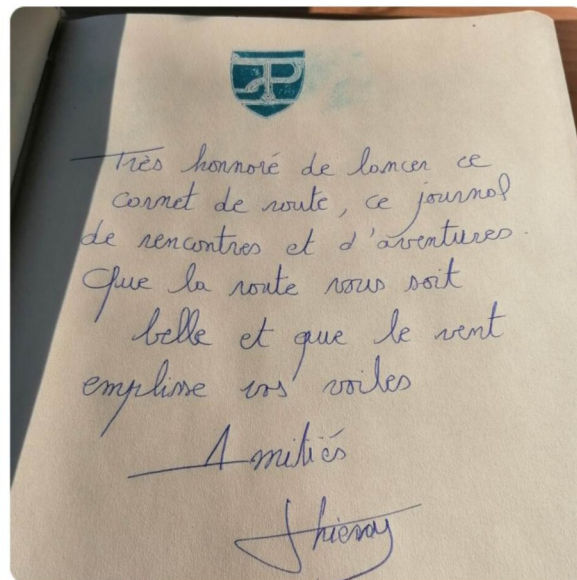 Très honnoré de lancer ce
carnet de route, ce journal
de rencontres et d'aventures.
Que la route vous soit
belle et que le vent
emplisse vos voiles
Amitiés
Thierry